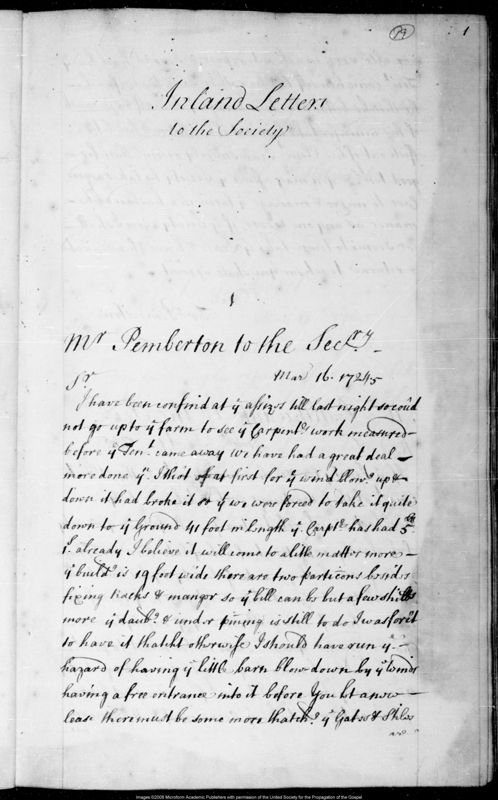 79
1
Inland Letters
to the Society
1
Mr Pemberton to the Secry
Mar 16. 1724/5
Sr
I have been confind at ye assizes till last night so coud
not go up to ye farm to see ye Carpentrs work measured
before ye Tent came away we have had a great deal
more done yn I thot of at first for ye wind blowg up &
down it had broke it so yt we were forced to take it quite
down to ye Ground 41 foot in Length ye Carptr has had 5
already I believe it will come to a little matter more
ye buildg is 19 foot wide there are two particons besides
fixing Racks & mangor so ye bill can be but a few shills
more ye daubg & under pining is still to do I was forc't
to have it thatcht otherwise I should have run ye
hazard of having ye little barn blow down by ye Winds
having a free entrance into it before You let a new
lease there must be some more thatchg ye Gates & Stiles
are
Images ©2008 Microform Academic Publishers with permission of the United Society for the Propagation of the Gospel